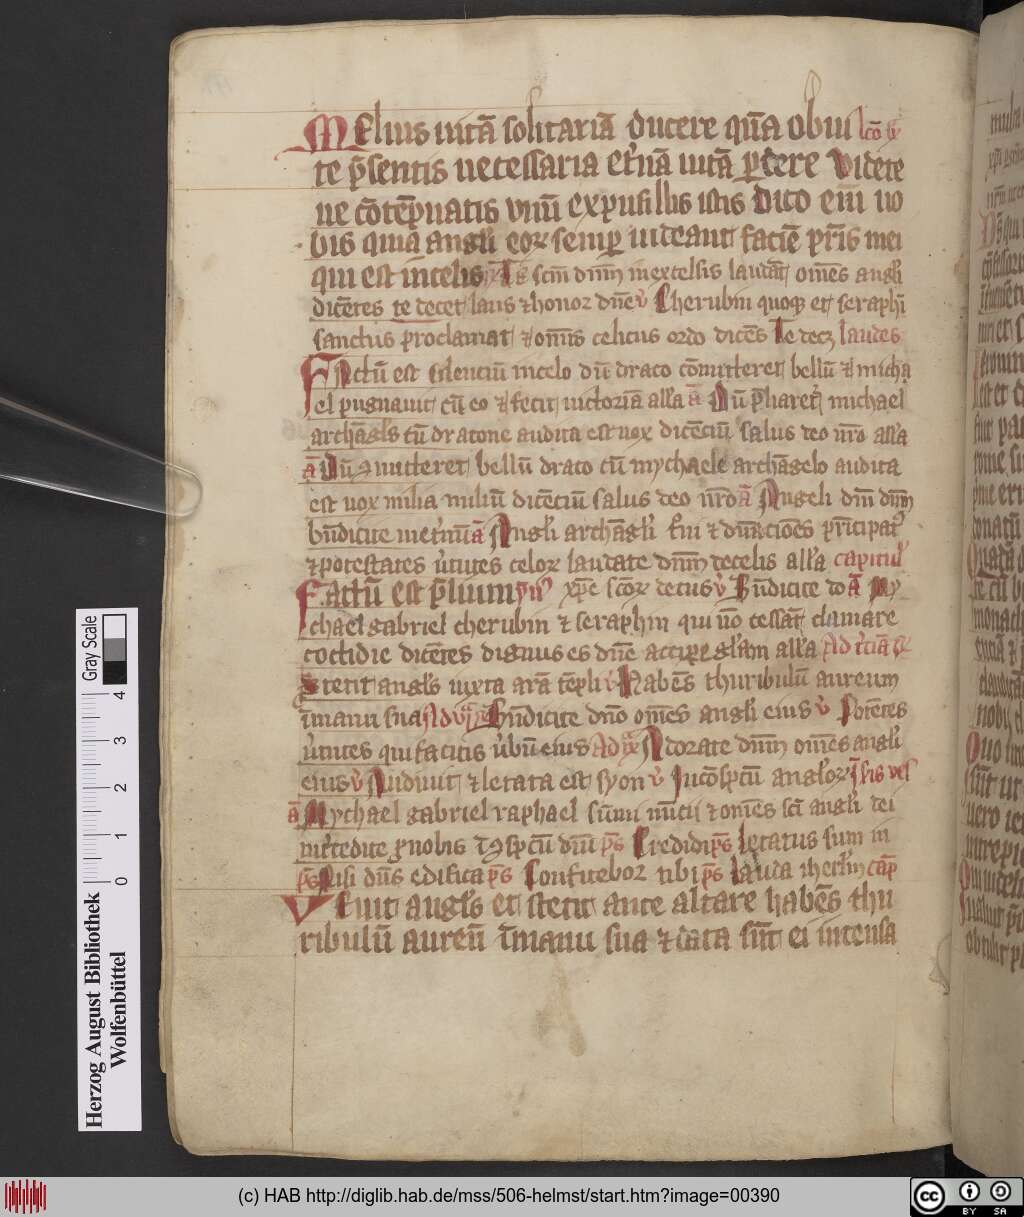 Melius uitā solitariā ducere quā obui lcō
te p̄sentis necessaria et̕nā uitā ꝑdere Videte
ne cōtēpnatis vnū ex pusillis istis Dico eni uo
bis quia angli eoꝝ semꝑ uident faciē pr̄is mei
qui est in celis Te scm̄ dn̄m in excelsis laudāt omēs angl̕i
dicētes te decet laus ⁊ honor dn̄e v̕ Cherubin quoqꝫ et seraphī
sanctus proclamat ⁊ omīs celicus ordo dicēs Te decꝫ laudes
Factū est silenciū in celo dū draco cōmitteret bellū ⁊ micha
el pugnauit cū eo ⁊ fecit uictoriā all̕a ā Dū p̄liaret̕ michael
archāgl̕s cū dracone audita est uox dicēciū salus deo nr̄o all̕a
ā Dū ꝯmitteret bellū draco cū mychaele archāgelo audita
est uox milia miliū dicēciū salus deo nr̄o ā Angeli dn̄i dn̄m
bn̄dicite in et̕nū ā Angl̕i archāgl̕i t̕ni ⁊ dn̄acioēs pͥncipat̕
⁊ potestates u̕tutes celoꝝ laudate dn̄m de celis all̕a capitul̕
Factū est p̄lium ymꝰ xpē scōꝝ decus v̕ Bn̄dicite do ā My
chael gabriel cherubin ⁊ seraphin qui nō cessāt clamare
cotidie dicētes dignus es dn̄e accipe gl̕am all̕a Ad t̕ciā
Stetit angl̕s iuxta arā tēpli v̕ Habēs thuribulū aureum
ī manu sua Ad vi Bn̄dicite dn̄o omēs angl̕i eius v̕ Potētes
u̕tutes qui facitis u̕bū eius Ad ix Adorate dn̄m omēs angl̕i
eius v̕ Audiuit ⁊ letata est syon v̕ In cōspctū angl̕oꝝ ī scd̕is ves
ā Mychael gabriel raphael sūmi nūcii ⁊ omēs scī angl̕i dei
int̕cedite ꝓ nobis ī ꝯspctū dn̄i ps̄ Credidi ps̄ Letatus sum in
ps̄ Nisi dn̄s edifica ps̄ Confitebor tibi ps̄ Lauda iherl̕m cap̄
Venit angl̕s et stetit ante altare habēs thu
ribulū aureū ī manu sua ⁊ data sūt ei incensa
Herzog August Bibliothek
Wolfenbüttel
Gray Scale
0 1 2 3 4
(c) HAB http://diglib.hab.de/mss/506-helmst/start.htm?image=00390
cc BY SA